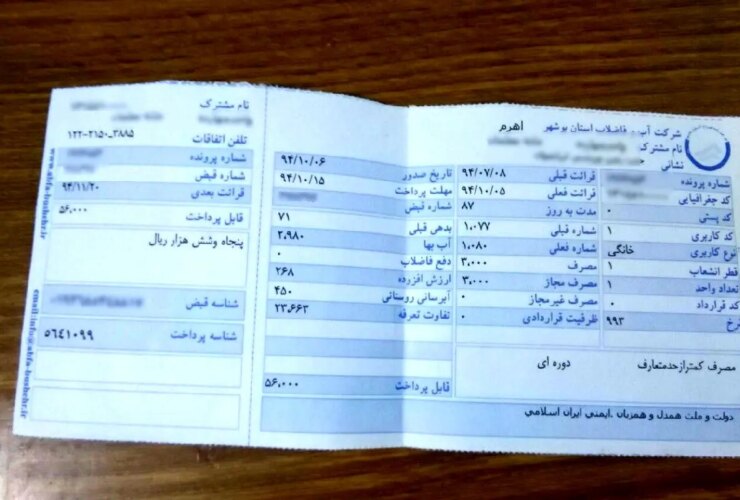 شرکت آب و فاضلاب استان بوشهر اهرم
نام مشترک
نشانی
شماره پرونده
کد جغرافیایی
کد پستی ۰
کد کاربری ۱
نوع کاربری خانگی
قطر انشعاب ۱
تعداد واحد ۱
کد قرارداد ۰
نرخ ۹۹۳
قرائت قبلی ۹۴/۰۷/۰۸
قرائت فعلی ۹۴/۱۰/۰۵
مدت به روز ۸۷
شماره قبلی ۱،۰۷۷
شماره فعلی ۱،۰۸۰
مصرف ۳،۰۰۰
مصرف مجاز ۳،۰۰۰
مصرف غیرمجاز ۰
ظرفیت قراردادی ۰
تاریخ صدور ۹۴/۱۰/۰۶
مهلت پرداخت ۹۴/۱۰/۱۵
شماره قبض
بدهی قبلی ۷۱
آب بها ۲،۹۸۰
دفع فاضلاب ۰
ارزش افزوده ۲۶۸
آبرسانی روستائی ۴۵۰
تفاوت تعرفه ۲۳،۶۶۳
قابل پرداخت ۵۶،۰۰۰
مصرف کمترازحدمتعارف
دوره ای
دولت و ملت همدل و همزبان .ایمنی ایران اسلامی
نام مشترک
تلفن اتفاقات ۱۲۲-۲۱۵۰_۳۸۸۵
شماره پرونده
شماره قبض
قرائت بعدی ۹۴/۱۱/۲۰
قابل پرداخت ۵۶،۰۰۰
پنجاه وشش هزار ریال
شناسه قبض
شناسه پرداخت ۵۶۴۱۰۹۹
www.abfa-bushehr.ir
email:info@abfa-bushehr.ir